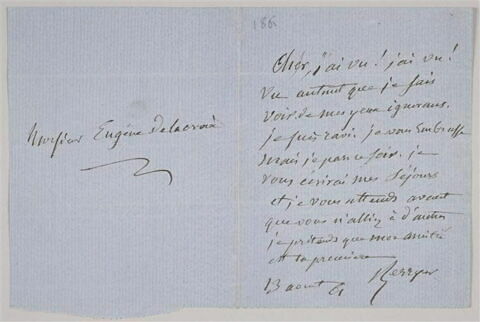 186
Monsieur Eugène Delacroix
Cher, j'ai vu ! j'ai vu !
vu autant que je sais
voir de mes yeux ignorans.
je suis ravi. je vous embrasse
mais je pars ce soir. je
vous écrirai mes séjours
et je vous attends avant
que vous n'alliez à d'autres
je prétends que mon amitié
est la première
13 aout 61 Berryer